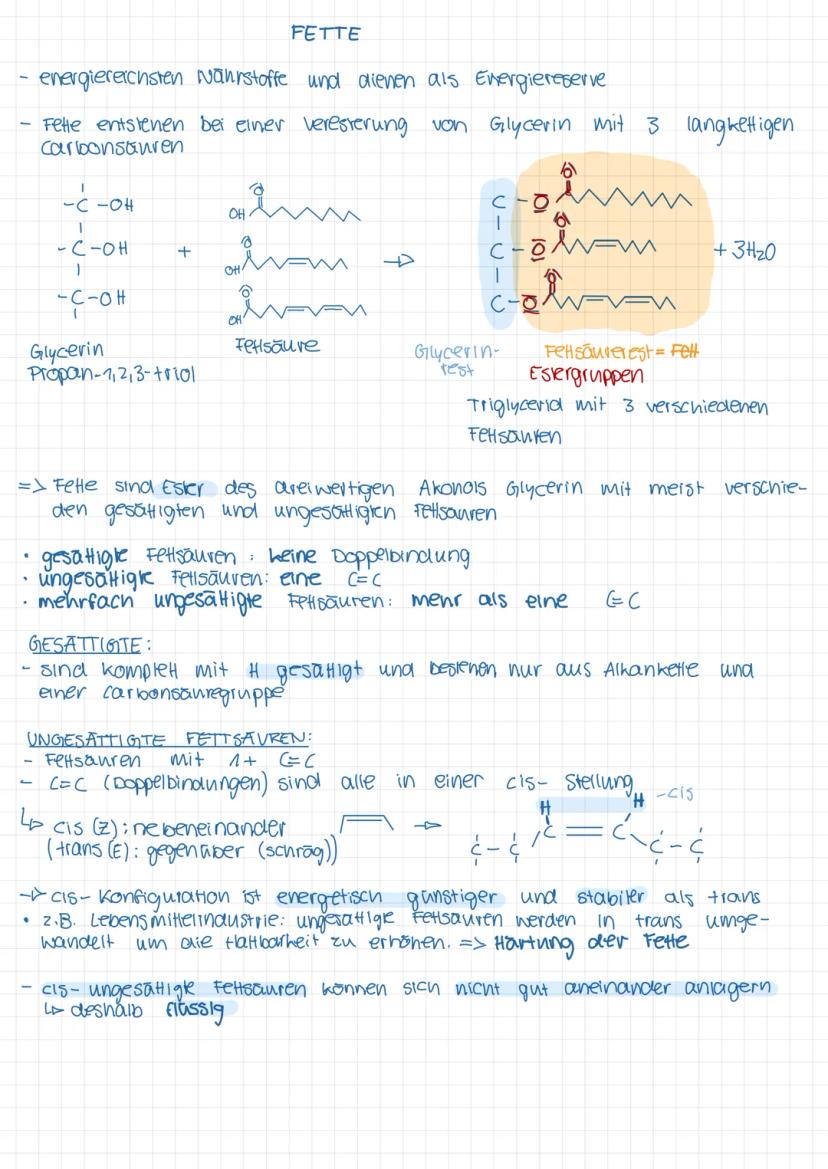 FETTE
- energiereichsten Nährstoffe und dienen als Energiereserve
- Fette entstehen bei einer Veresterung von Glycerin mit 3 langkettigen
Carbonsäuren
-C-OH
-C-OH
-C-OH
+
OH
OH
OH
C-O
C-O
C-O
+ 3H2O
Glycerin
Propan-1,2,3-triol
Fettsäure
Glycerin-
rest
Fettsäurerest = Fett
Estergruppen
Triglycerid mit 3 verschiedenen
Fettsäuren
=> Fette sind Ester des dreiwertigen Akohols Glycerin mit meist verschie-
den gesättigten und ungesättigten Fettsäuren
• gesättigte Fettsäuren: keine Doppelbindung
• ungesättigte Fettsäuren: eine C=C
• mehrfach ungesättigte Fettsäuren: mehr als eine C=C
GESÄTTIGTE:
- sind komplett mit H gesättigt und bestehen nur aus Alkankette und
einer Carbonsäuregruppe
UNGESÄTTIGTE FETTSÄUREN:
- Fettsäuren mit 1+ C=C
- C=C (Doppelbindungen) sind alle in einer cis- Stellung
H H -cis
↳ cis (Z): nebeneinander
(trans (E): gegenüber (schräg))
C-C C=C C-C
→ cis- Konfiguration ist energetisch günstiger und stabiler als trans
• z.B. Lebensmittelindustrie: ungesättige Fettsäuren werden in trans umge-
wandelt um die Haltbarkeit zu erhöhen. => Härtung der Fette
- cis- ungesättigte Fettsäuren können sich nicht gut aneinander anlagern
↳ deshalb flüssig